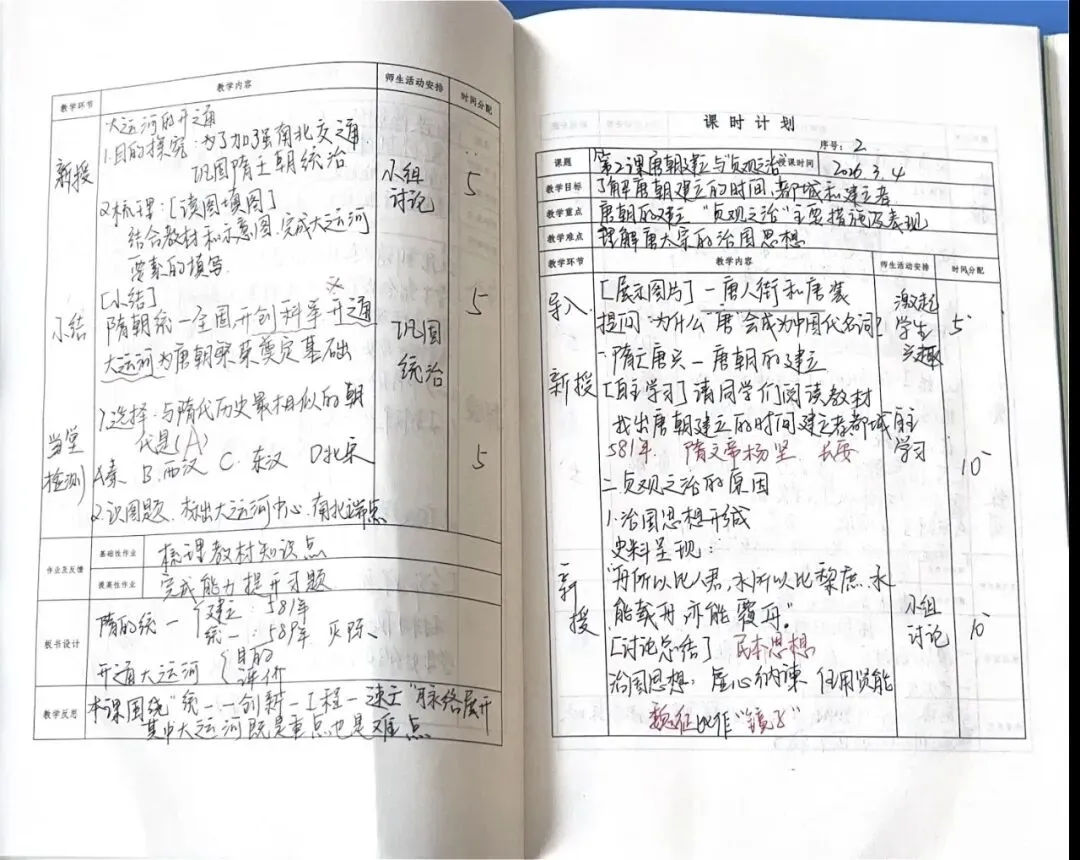 教学环节 教学内容 师生活动安排 时间分配
新授
大运河的开通
1.目的探究:为了加强南北交通
巩固隋王朝统治
2.梳理:[读图填图]
结合教材和示意图,完成大运河
要素的填写.
小组
讨论
5
小结
[小结]
隋朝统一全国,开创科举 开通
大运河为唐朝繁荣奠定基础
巩固
统治
5
当堂
检测
1.选择:与隋代历史最相似的朝
代是(A)
A秦 B.西汉 C.东汉 D北宋
2.识图题.标出大运河中心.南北端点
5
作业及反馈
基础性作业 梳理教材知识点
提高性作业 完成能力提升习题
板书设计
隋的统一 建立:581年
统一:589年 灭陈、
开通大运河 目的
评价
教学反思
本课围绕"统一—创新—工程—速亡"脉络展开
其中大运河既是重点也是难点
课时计划
序号:2
课题 第2课唐朝建立与"贞观之治" 授课时间 2026.3.4
教学目标 了解唐朝建立的时间,都城和建立者
教学重点 唐朝的建立 "贞观之治"主要措施及表现
教学难点 理解唐太宗的治国思想
教学环节 教学内容 师生活动安排 时间分配
导入
[展示图片]—唐人街和唐装
提问:为什么"唐"会成为中国代名词?
激起
学生
兴趣
5
一.隋亡唐兴—唐朝的建立
新授
[自主学习]请同学们阅读教材
找出唐朝建立的时间建立者都城
581年. 隋文帝杨坚. 长安
自主
学习
10
二.贞观之治的原因
1.治国思想形成
史料呈现:
新
授
"舟所以比人君,水所以比黎庶.水
能载舟.亦能覆舟."
[讨论总结] 民本思想
治国思想:虚心纳谏 任用贤能
魏征比作"镜子"
小组
讨论
10